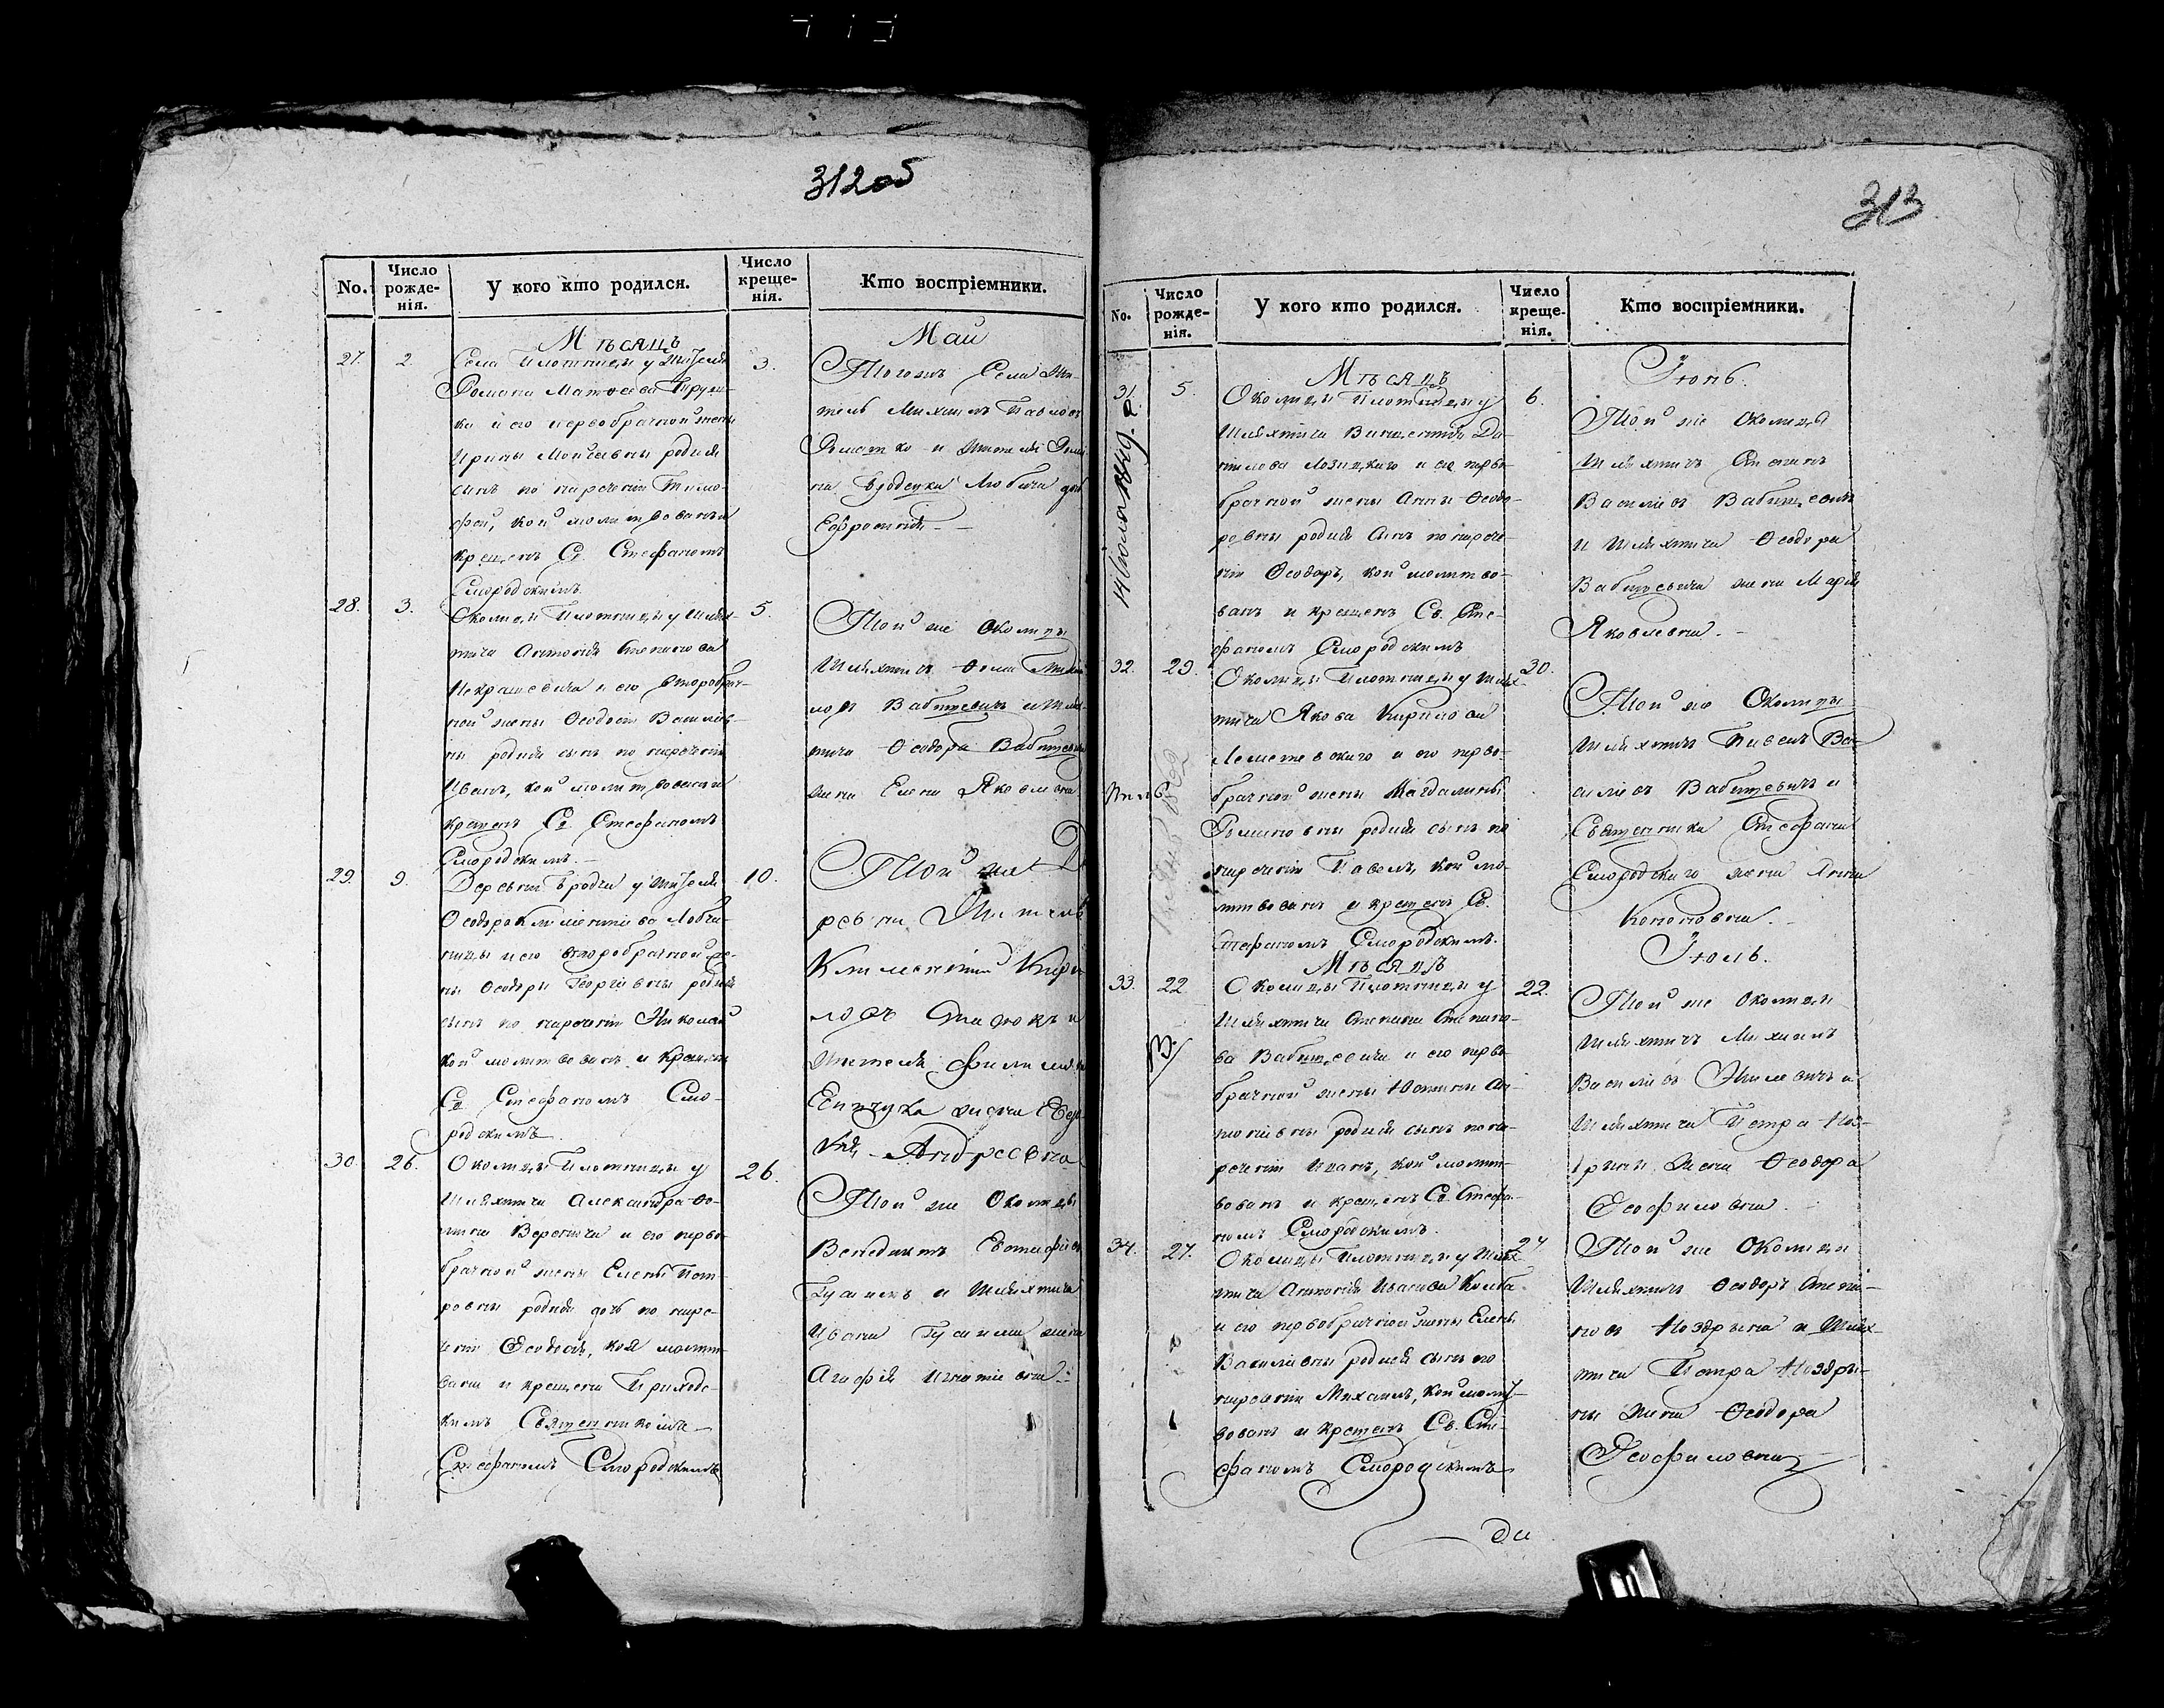 312 об
No.
Число рожде-нія.
У кого кто родился.
Число креще-нія.
Кто воспріемники.
Мѣсяцъ
Май
27.
2
Села Плотницы у жителя
Романа
ки и его первобрачной жены
Ирины Моисѣевны родился
сынъ по нареченіи Тимо-
фей, кой молитвованъ и
крещенъ Св. Стефаномъ
Смородскимъ.
3.
Тогожъ Села жи-
тель Михаилъ Павловъ
и жителя
дочь
Евфросинія
28.
3.
Околицы Плотницы у шлях-
тича Антонія Степанова
Некрашевича и его второбрач-
ной жены Ѳеодосіи Василіев-
ны родился сынъ по нареченіи
Иванъ, кой молитвованъ и
крещенъ Св Стефаномъ
Смородскимъ.
5.
Той же Околицы
Шляхтичъ Ѳома Михай
ловъ Вабищевичъ и шлях-
тича Ѳеодора Вабищевича
жена Елена Яковлевна
29.
9.
Деревни Бродчи у жителя
Ѳеодора Климентіева
ницы и его второбрачной же-
ны Ѳеодоры Георгіевны родился
сынъ по нареченіи Николай
кой молитвованъ и крещенъ
Св Стефаномъ Смо-
родскимъ.
10.
Той же Де
ревни Житель
Климентій Кири
ловъ Стасюкъ и
жителя Филимона
жена
Андреевна
30.
26.
Околицы Плотницы у
Шляхтича Александра Ѳо-
мина Веренича и его перво-
брачной жены Елены Пет-
ровны родилась дочь по наре-
ченіи Ѳеодосія, коя молит-
вана и крещена Приходс-
кимъ Священникомъ
Стефаномъ Смородскимъ
26.
Той же Околицы
Венедиктъ Евстафіевъ
и Шляхтича
Ивана жена
Агафія Игнатіевна
313
No.
Число рожде-нія.
У кого кто родился.
Число креще-нія.
Кто воспріемники.
Мѣсяцъ
Іюнь.
31.
5.
Околицы Плотницы у
Шляхтича Викентія Да-
нилова Лозицкаго и его перво-
брачной жены Анны Ѳеодо-
ровны родился Сынъ по нарече-
ніи Ѳеодоръ, кой молитво-
ванъ и крещенъ Св. Сте-
фаномъ Смородскимъ
6.
Той же Околицы
Шляхтичъ Степанъ
Василіевъ Вабищевичъ
и Шляхтича Ѳеодора
Вабищевича жена Марія
Яковлевна.
32.
29.
Околицы Плотницы у Шлях-
тича Якова Кирилова
Лемешевскаго и его перво-
брачной жены Магдалины
Романовны родился сынъ по
нареченіи Павелъ, кой мо-
литвованъ и крещенъ Св.
Стефаномъ Смородскимъ.
30.
Той же Околицы
Шляхтичъ Павелъ Ва-
силіевъ Вабищевичъ и
Священника Стефана
Смородскаго жена Анна
Кононовна.
Мѣсяцъ
Іюль.
33.
22
Околицы Плотницы у
Шляхтича Степана Степано-
ва Вабищевича и его перво-
брачной жены Юстины Ан-
тоніевны родился сынъ по на-
реченіи Иванъ, кой молит-
вованъ и крещенъ Св Стефа-
номъ Смородскимъ.
22.
Той же Околицы
Шляхтичъ Михаилъ
Василіевъ и
Шляхтича Петра Ноз-
дрины Жена Ѳеодора
Ѳеофиловна.
34.
27.
Околицы Плотницы у Шлях-
тича Антонія Иванова Колба
и его первобрачной жены Елены
Василіевны родился сынъ по
нареченіи Михаилъ, кой молит-
вованъ и крещенъ Св. Сте-
фаномъ Смородскимъ
27
Той же Околицы
Шляхтичъ Ѳеодоръ Степа-
новъ Ноздрына и Шлях-
тича Петра Ноздры-
ны Жена Ѳеодора
Ѳеофиловна